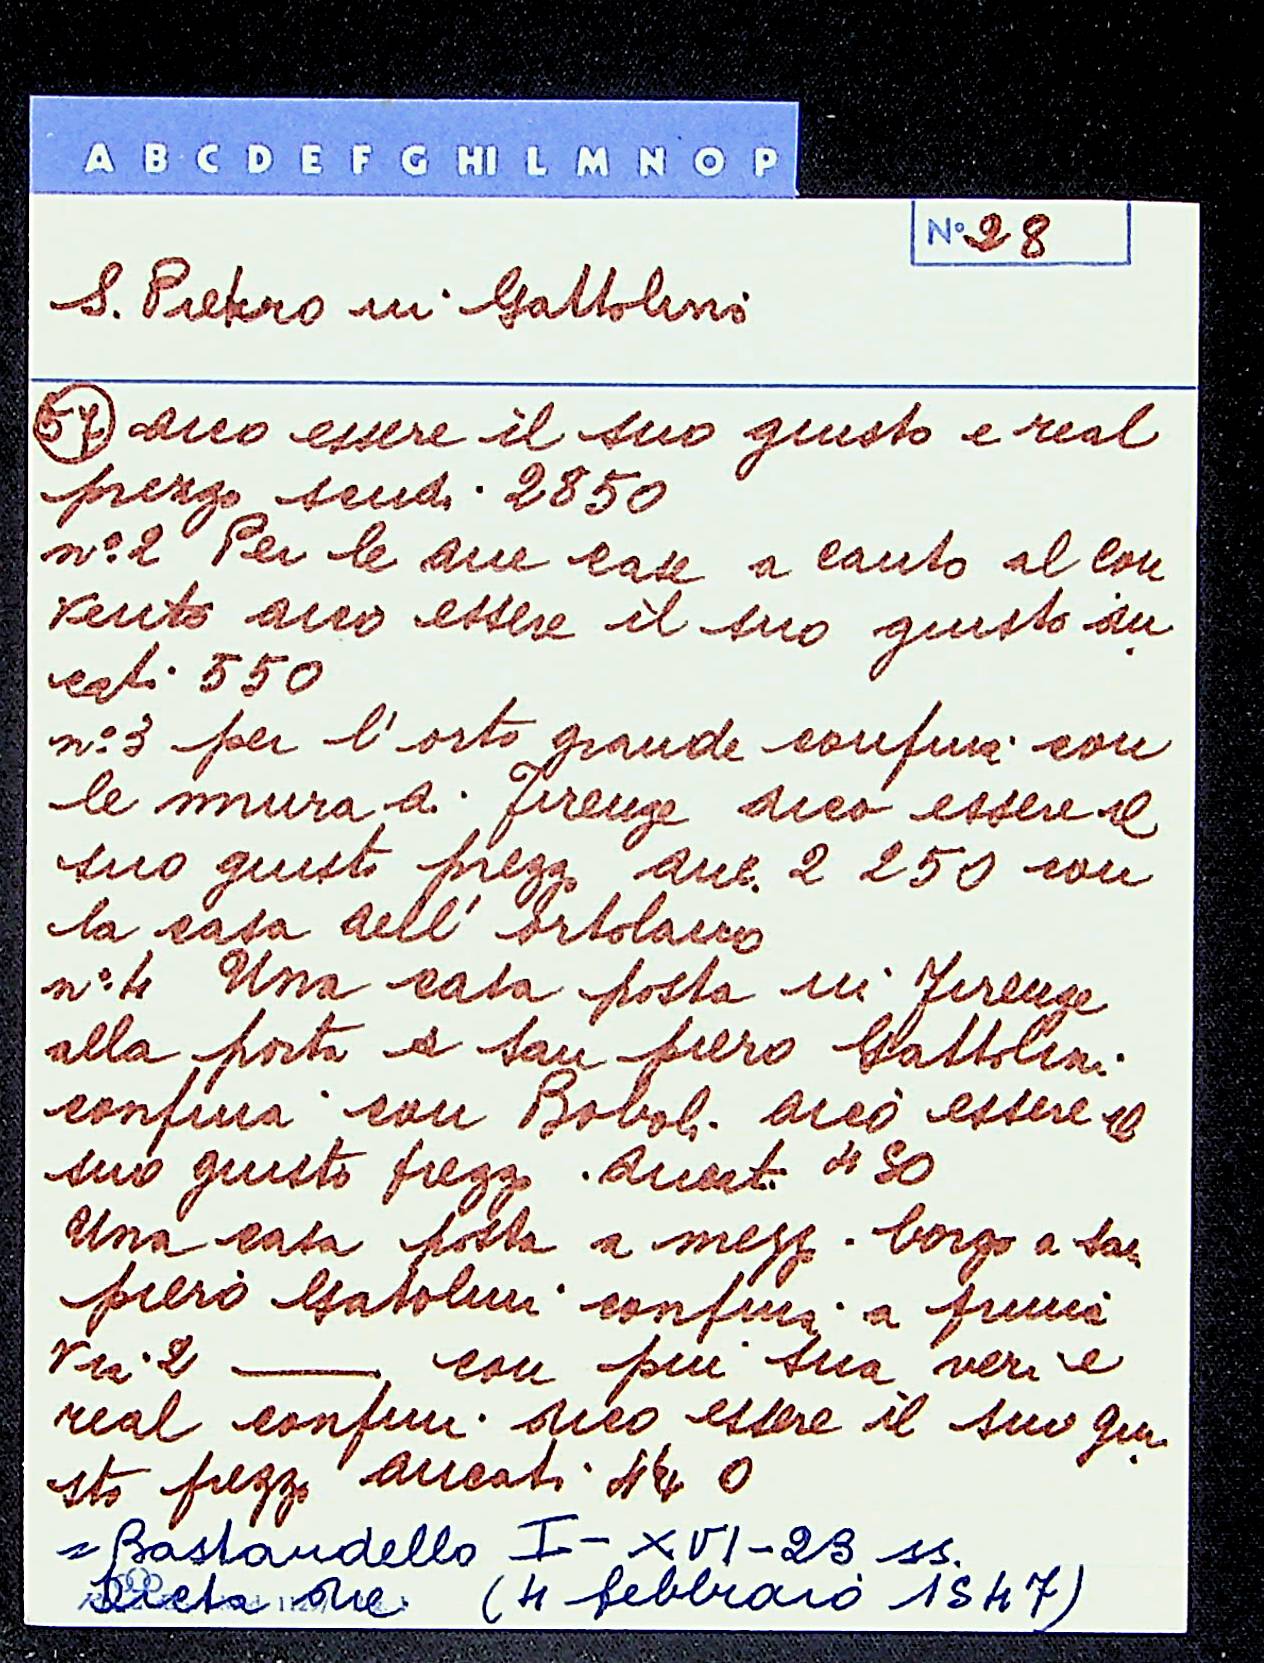 A B C D E F G HI L M N O P
N° 28
S. Pietro in Gattolini
57 dico essere il suo giusto e real
prezzo scudi 2850
n° 2 Per le due case a canto al con
vento dico essere il suo giusto du
cati 550
n° 3 per l'orto grande confina con
le mura di Firenze dico essere il
suo giusto prezzo duc. 2 250 con
la casa dell' ortolano
n° 4 Una casa posta in Firenze
alla porta a san piero Gattolini
confina con Boboli dico essere il
suo giusto prezzo ducat.
Una casa posta a mezzo borgo a san
piero Gatolini confini a primi
via 2 ——— con piu sua veri e
real confini dico essere il suo giu
sto prezzo ducati
= Bastardello I - XVI - 23 ss.
(4 febbraio 1547)